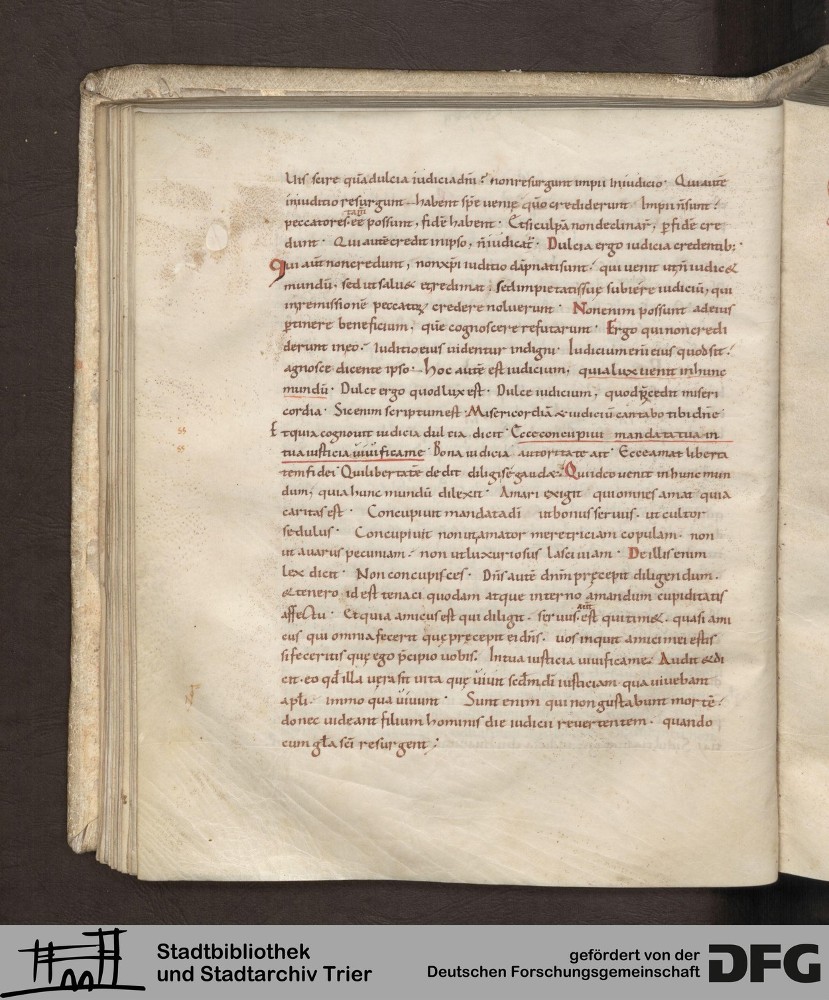 Uis scire quã dulcia iudicia dñi? non resurgunt impii in iudicio · Qui autẽ
in iuditio resurgunt habent spẽ venię quõ crediderunt · Impii ñ sunt?
peccatores tam̃ ee possunt, fidẽ habent · Et si culpã non declinar̃, ꝑfidẽ cre
dunt · Qui autẽ credit in ipso, ñ iudicat̃ · Dulcia ergo iudicia credentib;
Qui aut̃ non credunt, non xp̃i iuditio dãpnati sunt, qui venit ut ñ iudic&
mundũ, sed ut salu& · sed impietatis suę subiere iudiciũ, qui
in remissionẽ peccati credere noluerunt · Non enim possunt ad eius
ꝑtinere beneficium, quẽ cognoscere refutarunt · Ergo qui non credi
derunt in eo · Iuditio eius videntur indigni · Iudicium eni eius quod sit?
agnosce dicente ipso · Hoc autẽ est iudicium, quia lux venit in hunc
mundũ · Dulce ergo quod lux est · Dulce iudicium, quod ꝓcedit miseri
cordia · Sic enim scriptum est · Misericordiã & iudiciũ cantabo tibi dñe
Et quia cognovit iudicia dulcia dicit · Ecce concupivi mandata tua in
tua iusticia vivifica me · Bona iudicia autoritate ait · Ecce amat liberta
tem fidei · Qui libertatẽ dedit diligi se gaud& · Qui deo venit in hunc mun
dum, quia hunc mundũ dilexit · Amari exigit qui omnes amat quia
caritas est · Concupivit mandata di ut bonus servus · ut cultor
sedulus · Concupivit non ut amator meretriciam copulam · non
ut avarus pecuniam · non ut luxuriosus lasciviam · De illis enim
lex dicit · Non concupisces · Dñs autẽ dnm̃ pręcepit diligendum ·
& tenero id est tenaci quodam atque interno amandum cupiditatis
affectu · Et quia amicus est qui diligit · servus aut̃ est qui tim& · quasi ami
cus qui omnia fecerit quę pręcepit ei dñs · vos inquit amici mei estis
si feceritis quę ego p̃cipio vobis · In tua iusticia vivifica me · Audit & di
cit · eo qđ illa vera sit vita quę vivit scđm di iusticiam qua vivebant
apłi · immo qua vivunt · Sunt enim qui non gustabunt mortẽ
donec videant filium hominis die iudicii revertentem · quando
cum gła sci resurgent ·
ss
ss
Stadtbibliothek
und Stadtarchiv Trier
gefördert von der
Deutschen Forschungsgemeinschaft
DFG